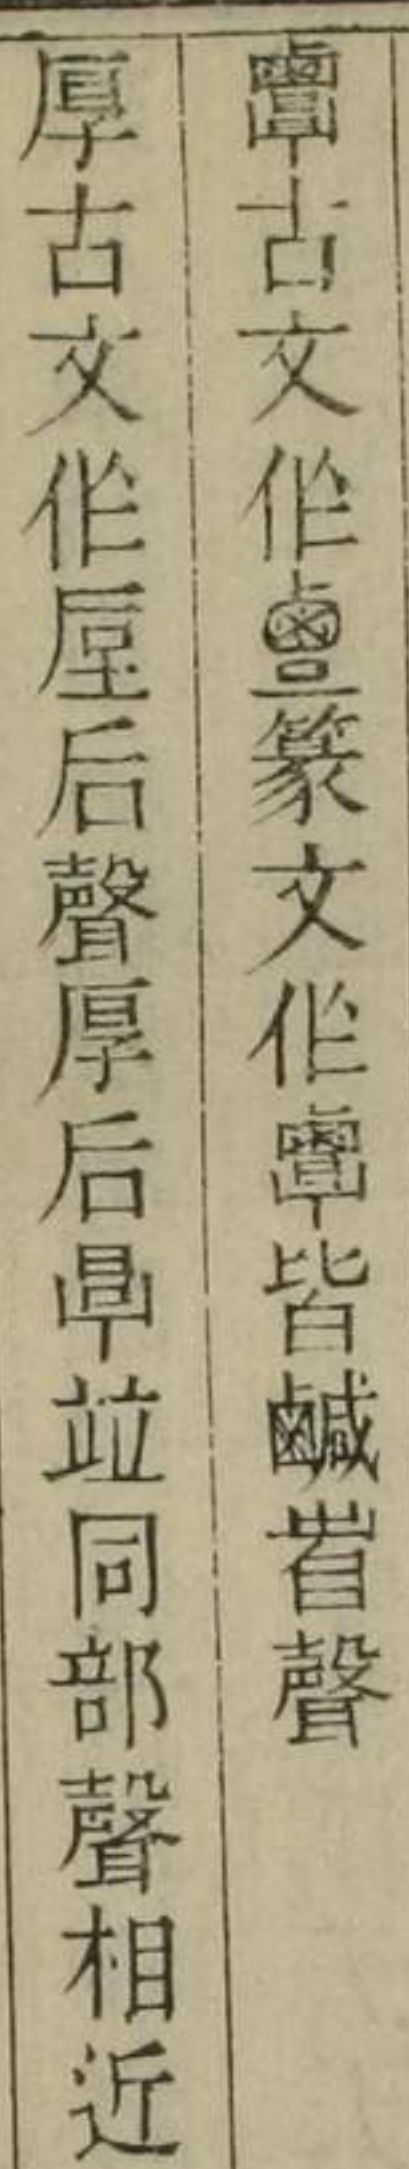 𪉷古文作篆文作皆鹹省聲
厚古文作垕后聲厚后㫗竝同部聲相近